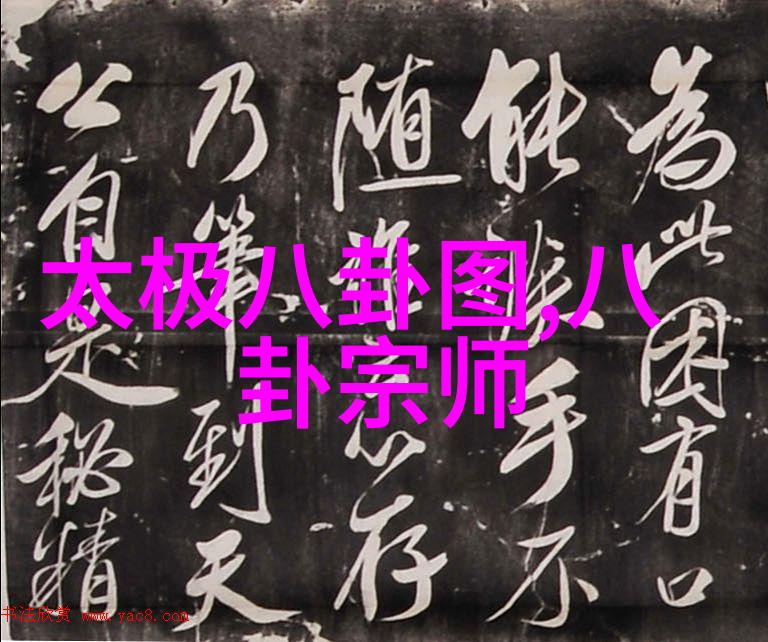 太极八卦图,八
卦宗师
為此因有口
能談手不
随誰云心存
乃筆到天
公自是秘精
书法欣赏 www.yac8.com